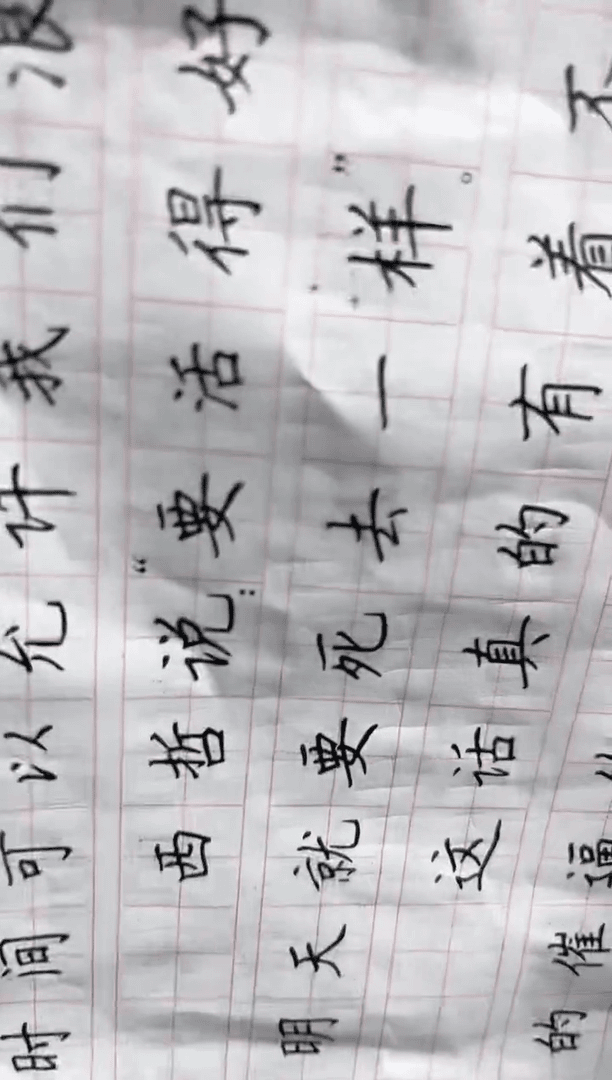 时间可以允许我们浪
西哲说：“要活得好
明天就要死去一样”。
这话真的有着不
的催逼